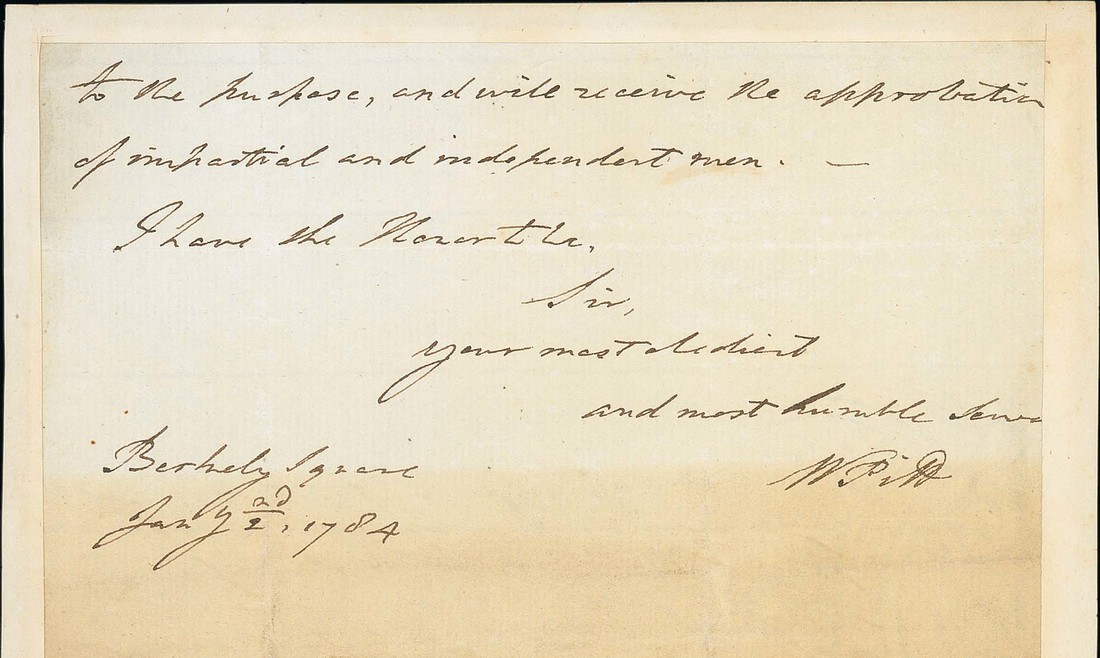 to the purpose, and will receive the approbation
of impartial and independent men. —
I have the Honor to be,
Sir,
your most obedient
and most humble Serva
Berkely Square
Jan'y 2nd, 1784
W Pitt